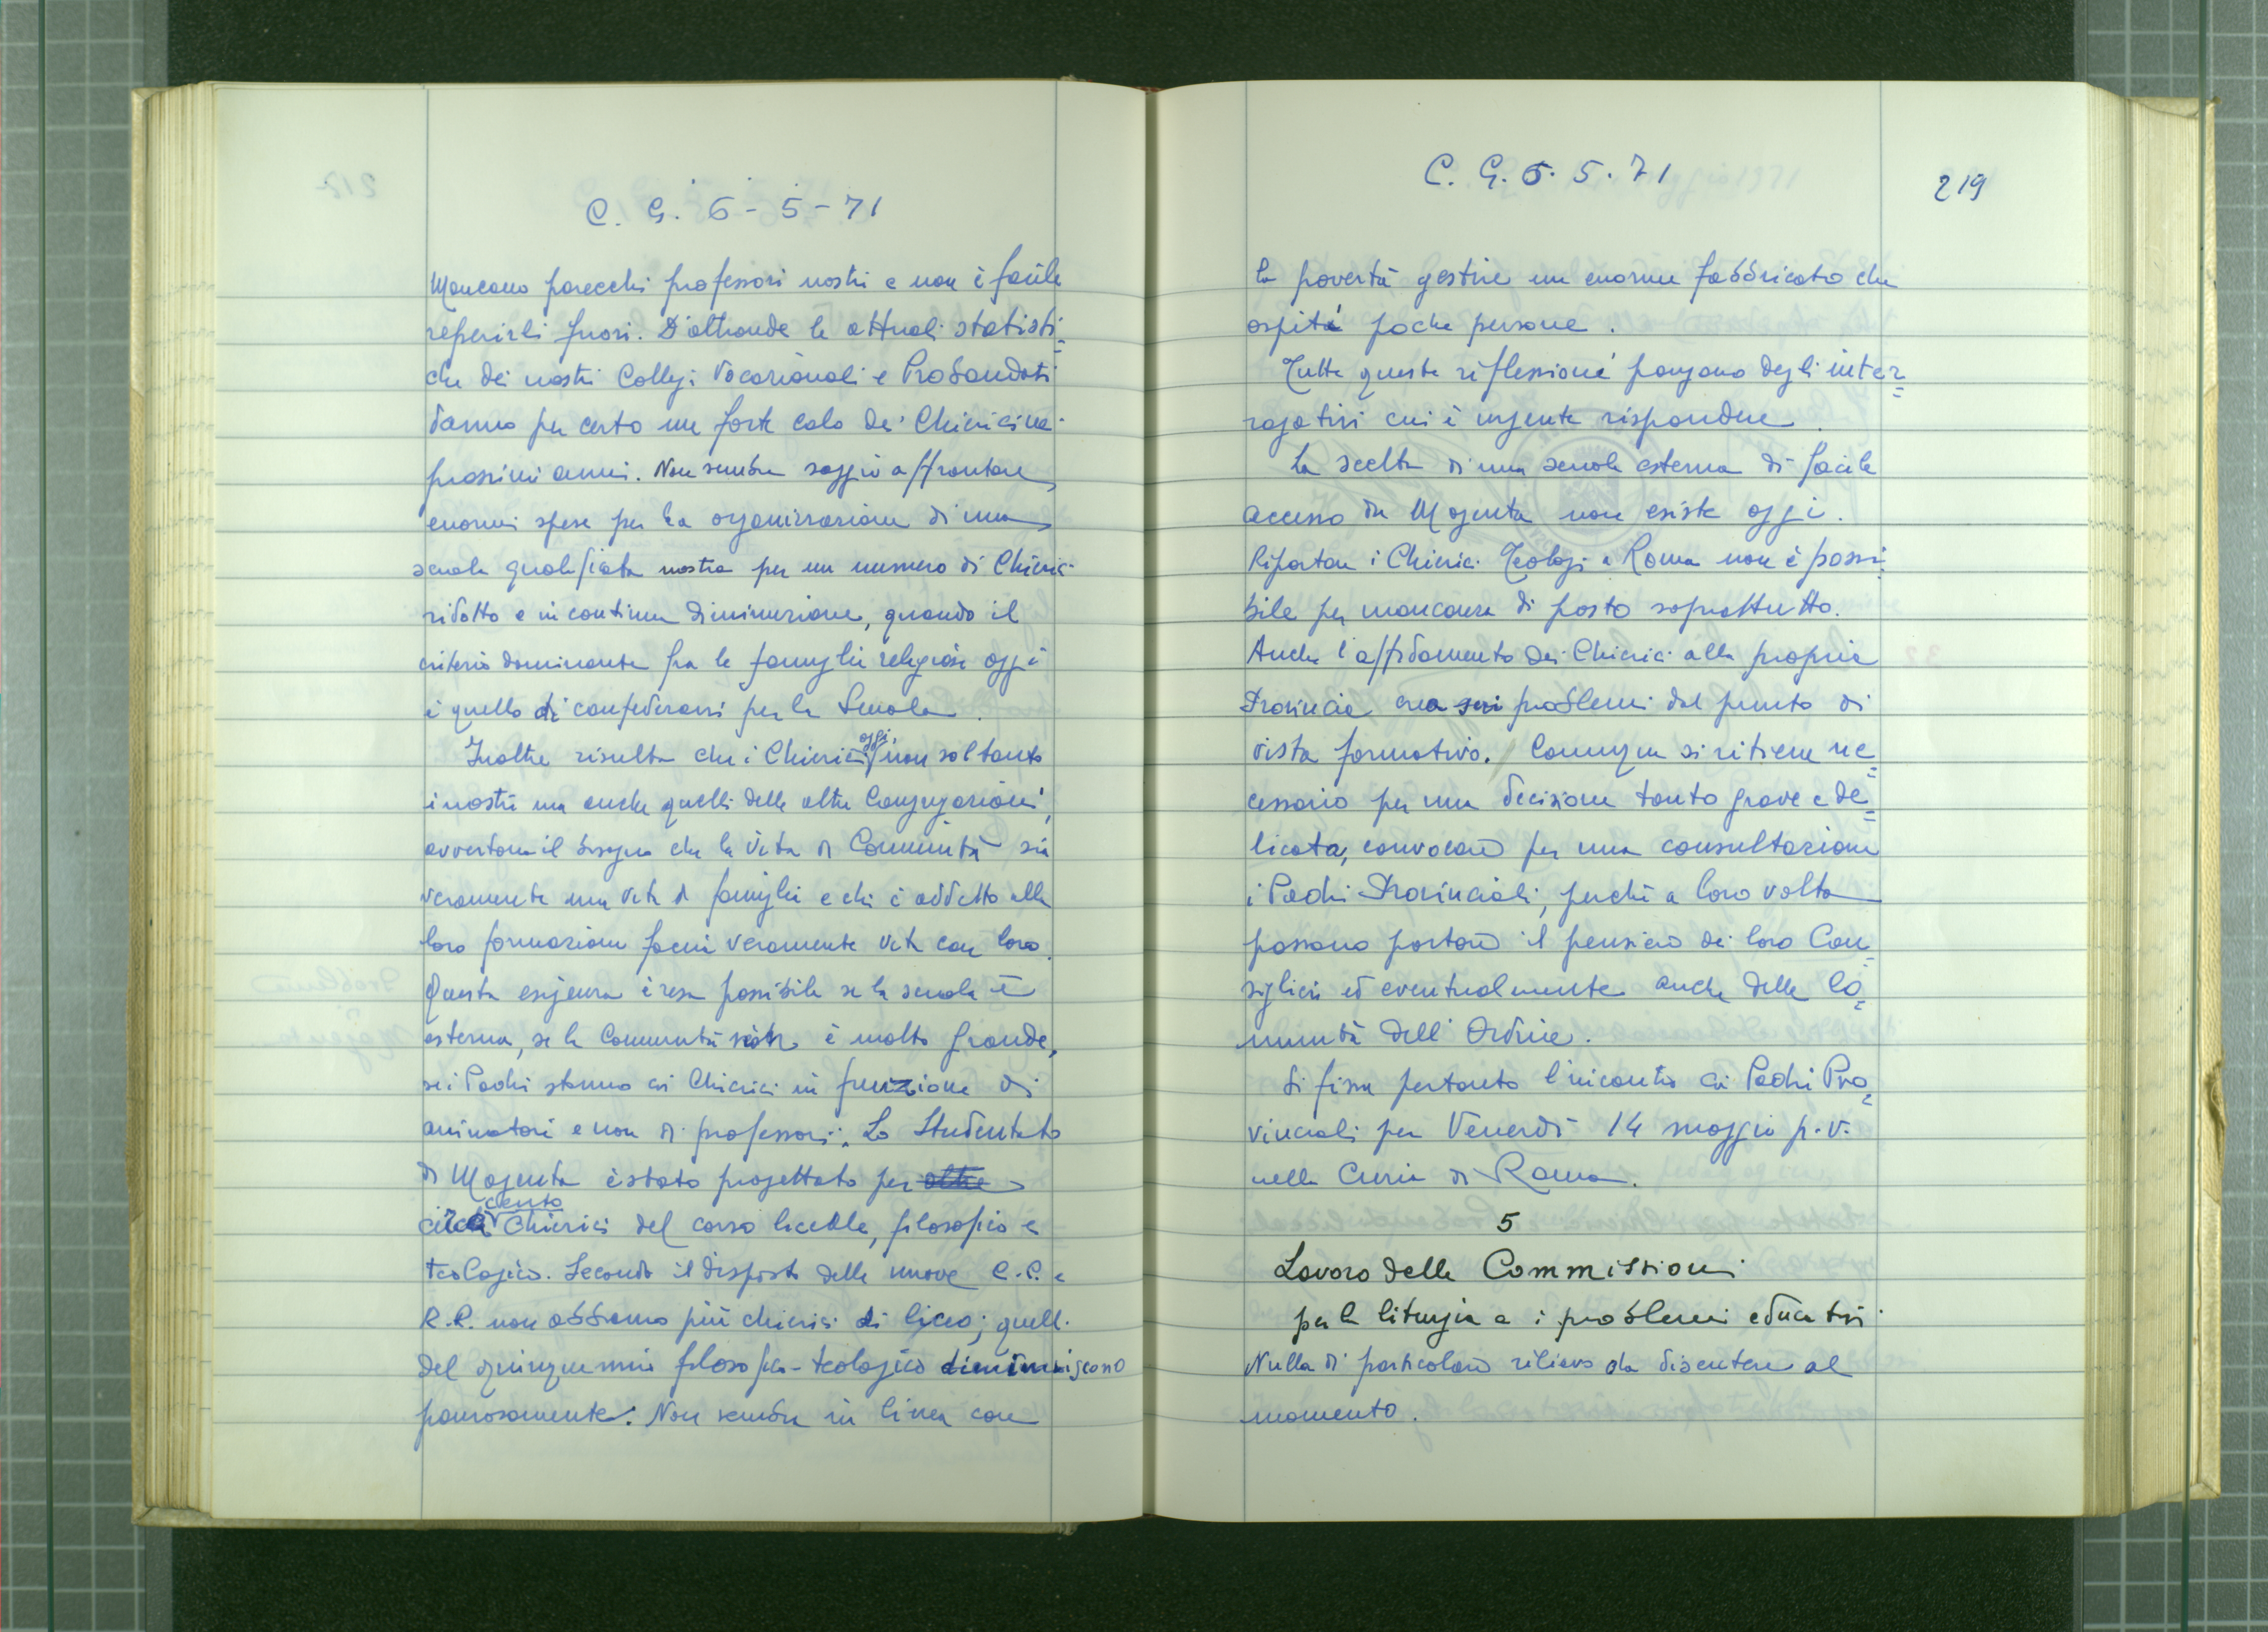 C. G. 6-5-71
Mancano parecchi professori nostri e non è facile
reperirli fuori. D'altronde le attuali statisti=
che dei nostri Collegi Vocazionali e Probandati
danno per certo un forte calo dei Chierici nei
prossimi anni. Non sembra saggio affrontare
enormi spese per la organizzazione di una
scuola qualificata nostra per un numero di Chierici
ridotto e in continua diminuzione, quando il
criterio dominante fra le famiglie religiose oggi
è quello di confederarsi per la Scuola.
Inoltre risulta che i Chierici oggi, non soltanto
i nostri ma anche quelli delle altre Congregazioni,
avvertono il bisogno che la Vita di Comunità sia
veramente una vita di famiglia e chi è addetto alla
loro formazione facci veramente vita con loro.
Questa esigenza è resa possibile se la scuola è
esterna, se la Comunità non è molto grande,
se i Padri stanno coi Chierici in funzione di
animatori e non di professori. Lo Studentato
di Magenta è stato progettato per oltre
circa cento Chierici del corso liceale, filosofico e
teologico. Secondo il disposto delle nuove C.C. e
R.R. non abbiamo più chierici di liceo; quelli
del quinquennio filosofico-teologico diminuiscono
paurosamente. Non sembra in linea con
C. G. 6. 5. 71
219
la povertà gestire un enorme fabbricato che
ospita poche persone.
Tutte queste riflessioni pongono degli inter=
rogativi cui è urgente rispondere.
La scelta di una scuola esterna di facile
accesso da Magenta non esiste oggi.
Riportare i Chierici Teologi a Roma non è possi=
bile per mancanza di posto soprattutto.
Anche l'affidamento dei Chierici alla propria
Provincia crea seri problemi dal punto di
vista formativo. Comunque si ritiene ne=
cessario per una decisione tanto grave e de=
licata, convocare per una consultazione
i Padri Provinciali, perché a loro volta
possano portare il pensiero dei loro Con=
siglieri ed eventualmente anche delle Co=
munità dell'Ordine.
Si fissa pertanto l'incontro coi Padri Pro=
vinciali per Venerdì 14 maggio p.v.
nella Curia di Roma.
5
Lavoro delle Commissioni
per la liturgia e i problemi educativi
Nulla di particolare rilievo da discutere al
momento.